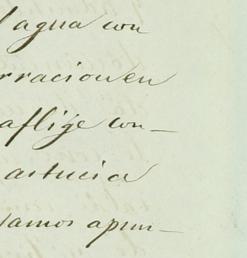 l agua con
rracion en
aflige con-
astucia
lamos apun-